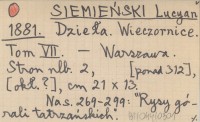 SIEMIEŃSKI Lucyan
1881. Dzieła. Wieczornice.
Tom VII. – Warszawa.
Stron nlb. 2, [ponad 312],
[okł.?], cm 21 x 13.
Na s. 269-299: "Rysy gó-
rali tatrzańskich.